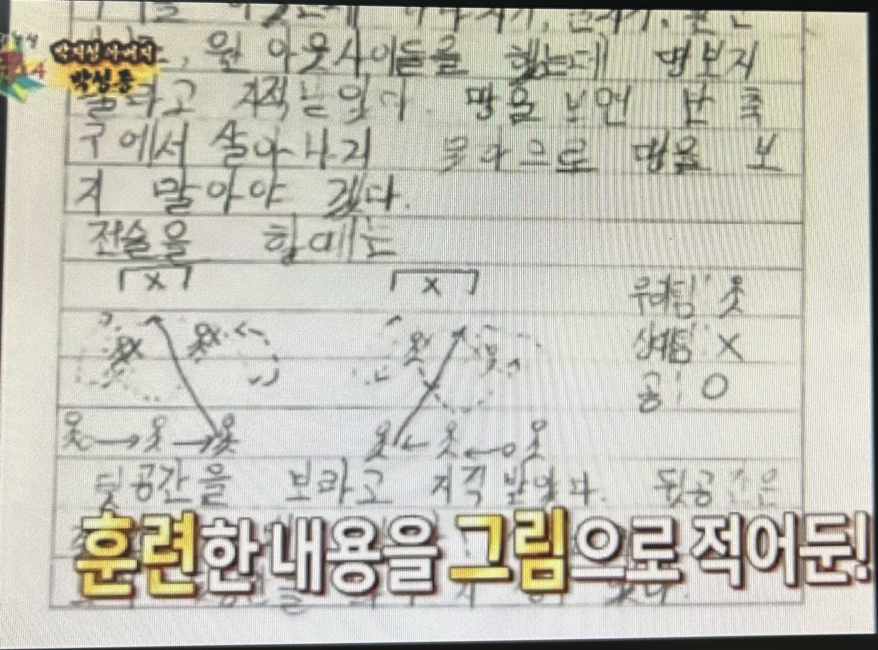 박지성 아버지
박성종
, 원 아웃사이드를 했는데 땅보지
말라고 지적 받았다. 땅을 보면 반 축
구에서 살아나지 못하므로 땅을 보
지 말아야 겠다.
전술을 할때는
X X
우리팀: 웃
상대팀: X
공: O
뒷공간을 보라고 지적 받았다. 뒷공간은
훈련한 내용을 그림으로 적어둔!